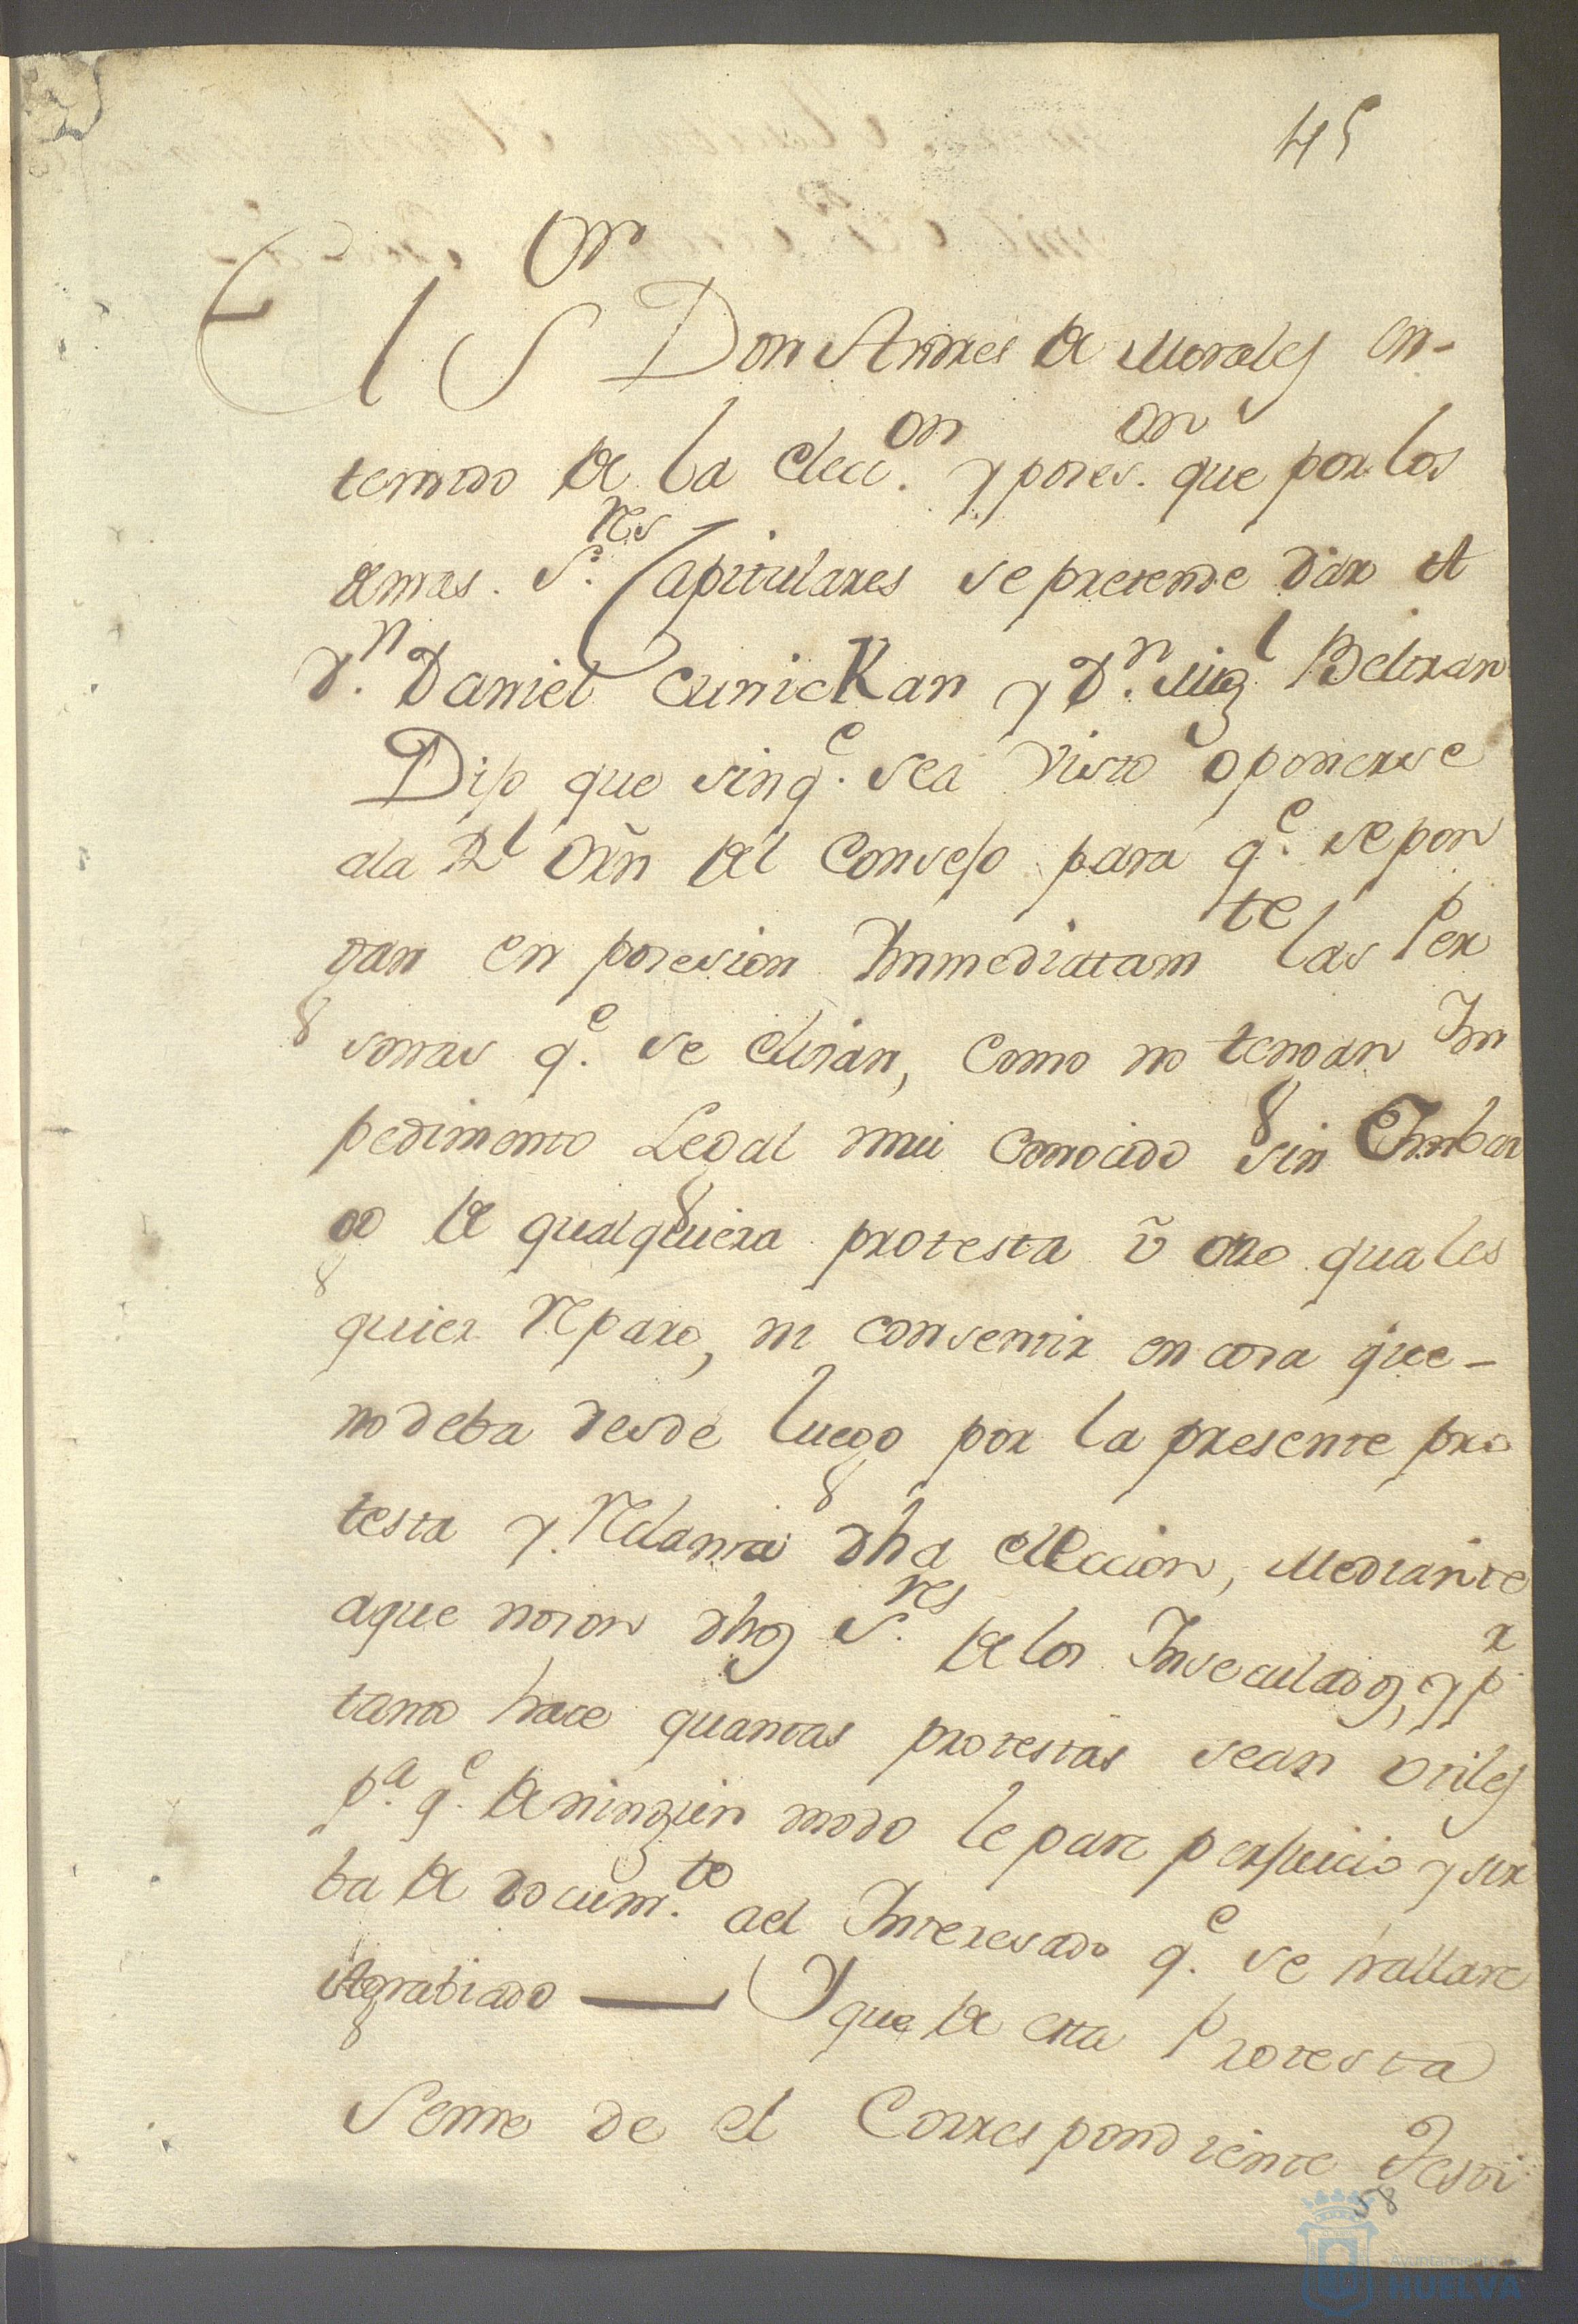 45
El S.or Don Andres de Morales en-
terado de la elecc.on y poses.on que por los
demas S.res Capitulares se pretende dar A
D.n Daniel CunicKan y D.n Mig.l Beltran
Dijo que sin q.e sea visto oponerse
ala R.l Orñ del Consejo para q.e se pon
gan en posesion Inmediatam.te las Per
sonas q.e se elixan, como no tengan Im
pedimento Legal mui conocido sin Embar
go de qualquiera protesta ũ otro quales
quier Reparo, ni consentir en cosa que-
no deba desde luego por la presente pro
testa y Reclama dha eleccion, Mediante
aque no son dhos S.res de los Inseculados, y p.r
tanto hace quantas protestas sean utiles
p.a q.e de ningun modo le pare perjuicio y sir
ba de docum.to ael Interesado q.e se hallare
Agrabiado — Y que de esta Protesta
Sente de el Correspondiente Testi
Ayuntamiento
HUELVA